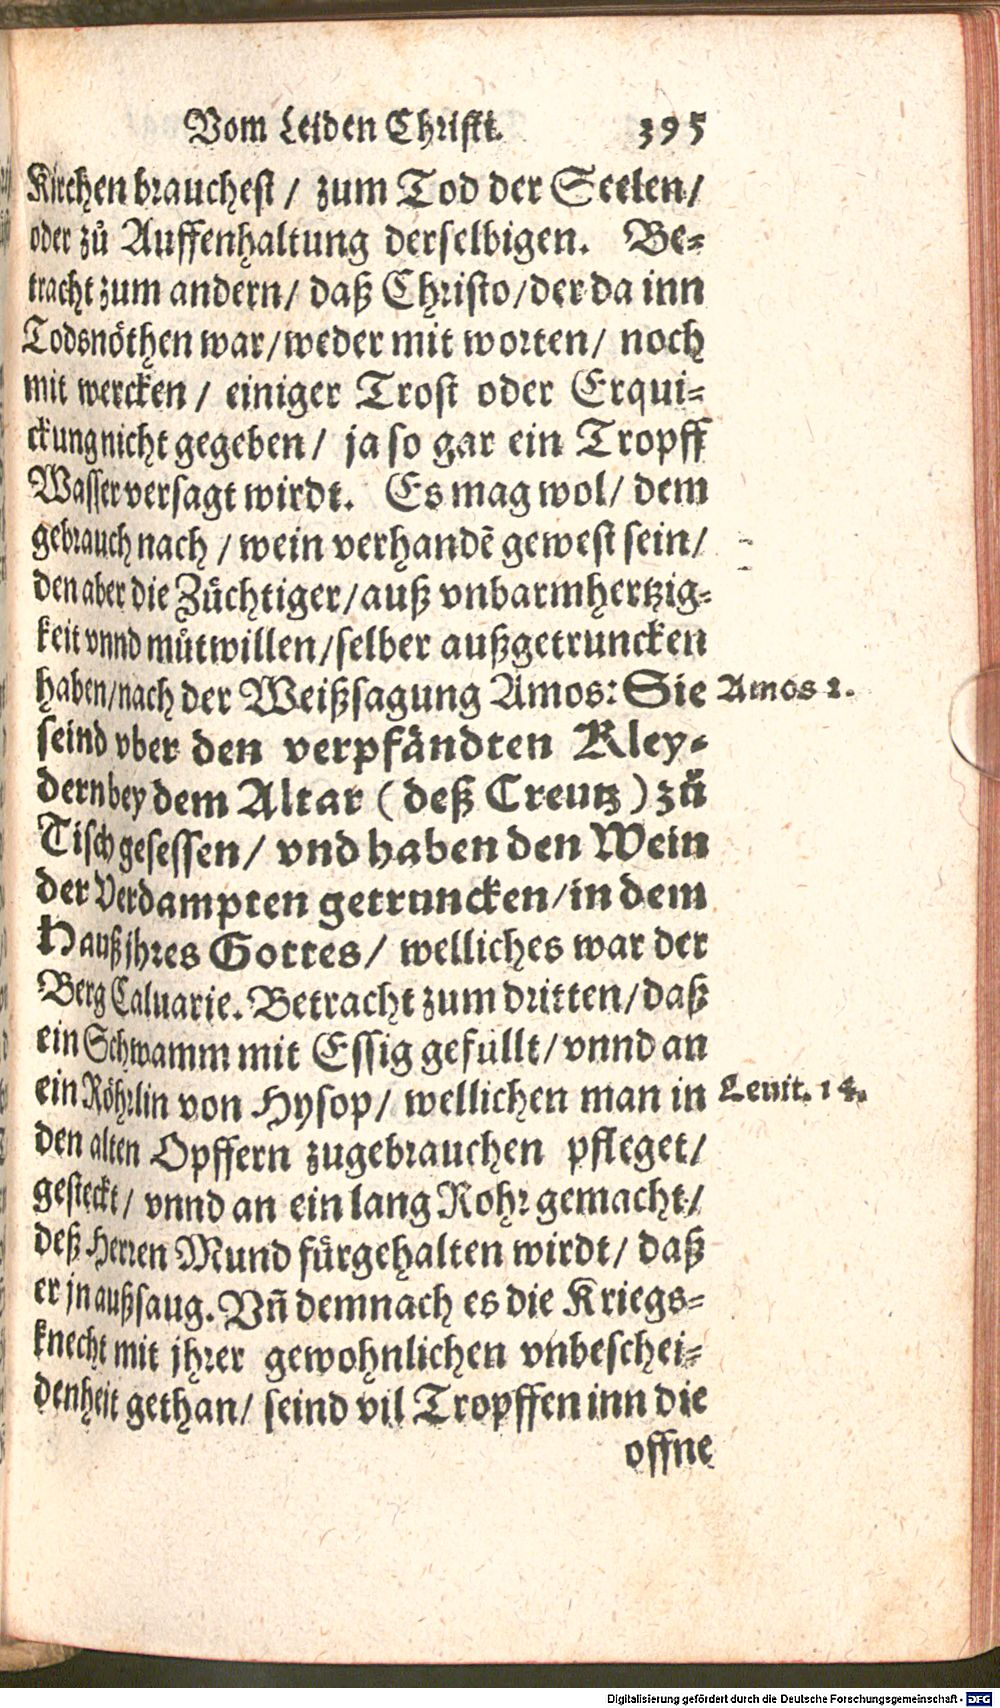 Vom Leiden Christi. 395
Kirchen brauchest / zum Tod der Seelen /
oder zů Auffenhaltung derselbigen. Be-
tracht zum andern / daß Christo / der da inn
Todsnöthen war / weder mit worten / noch
mit wercken / einiger Trost oder Erqui-
ckung nicht gegeben / ja so gar ein Tropff
Wasser versagt wirdt. Es mag wol / dem
gebrauch nach / wein verhandẽ gewest sein /
den aber die Züchtiger / auß vnbarmhertzig-
keit vnnd můtwillen / selber außgetruncken
haben / nach der Weißsagung Amos: Sie
Amos 2.
seind vber den verpfändten Kley-
dern bey dem Altar (deß Creutz) zů
Tisch gesessen / vnd haben den Wein
der Verdampten getruncken / in dem
Hauß jhres Gottes / welliches war der
Berg Caluarie. Betracht zum dritten / daß
ein Schwamm mit Essig gefüllt / vnnd an
ein Röhrlin von Hysop / wellichen man in
Leuit. 14.
den alten Opffern zugebrauchen pfleget /
gesteckt / vnnd an ein lang Rohr gemacht /
deß Herren Mund fürgehalten wirdt / daß
er jn außsaug. Vñ demnach es die Kriegs-
knecht mit jhrer gewohnlichen vnbeschei-
denheit gethan / seind vil Tropffen inn die
offne
Digitalisierung gefördert durch die Deutsche Forschungsgemeinschaft - DFG